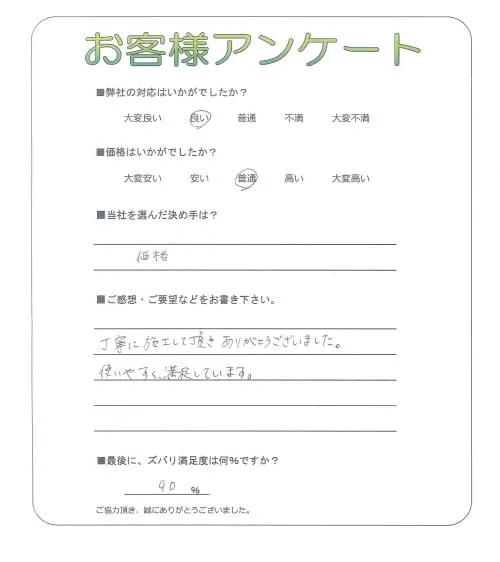 お客様アンケート
■弊社の対応はいかがでしたか?
大変良い 良い 普通 不満 大変不満
■価格はいかがでしたか?
大変安い 安い 普通 高い 大変高い
■当社を選んだ決め手は?
価格
■ご感想・ご要望などをお書き下さい。
丁寧に施工して頂きありがとうございました。
使いやすく、満足しています。
■最後に、ズバリ満足度は何%ですか?
90 %
ご協力頂き、誠にありがとうございました。